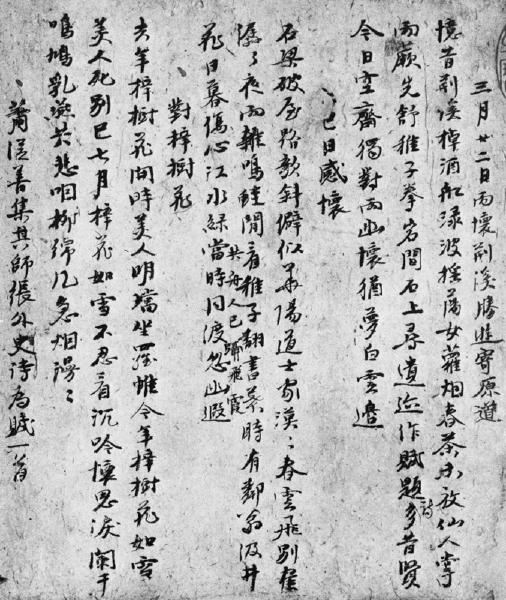 三月廿二日雨懷荆溪勝遊寄原道
憶昔荆溪棹酒船渌波搖蕩女蘿烟春茶未放仙人掌
雨蕨先舒稚子拳岩間石上尋遺迹作賦題詩多昔賢
今日空齋獨對雨幽懷猶夢白雲邊
巳日感懷
石梁破屋路欹斜僻似華陽道士家漠〻春雲飛別崖
潺〻夜雨雜鳴蛙閒看稚子翻書葉時有鄰翁汲井
共舟人已歸飛霞
花日暮傷心江水綠當時同渡忽幽遐
對梓樹花
去年梓樹花開時美人明璫坐羅帷今年梓樹花如雪
美人死別已七月梓花如雪不忍看沉吟懷思淚闌干
鳴鳩乳燕共悲咽柳綿風急烟漫〻
蕭從善集其師張外史詩為賦一首